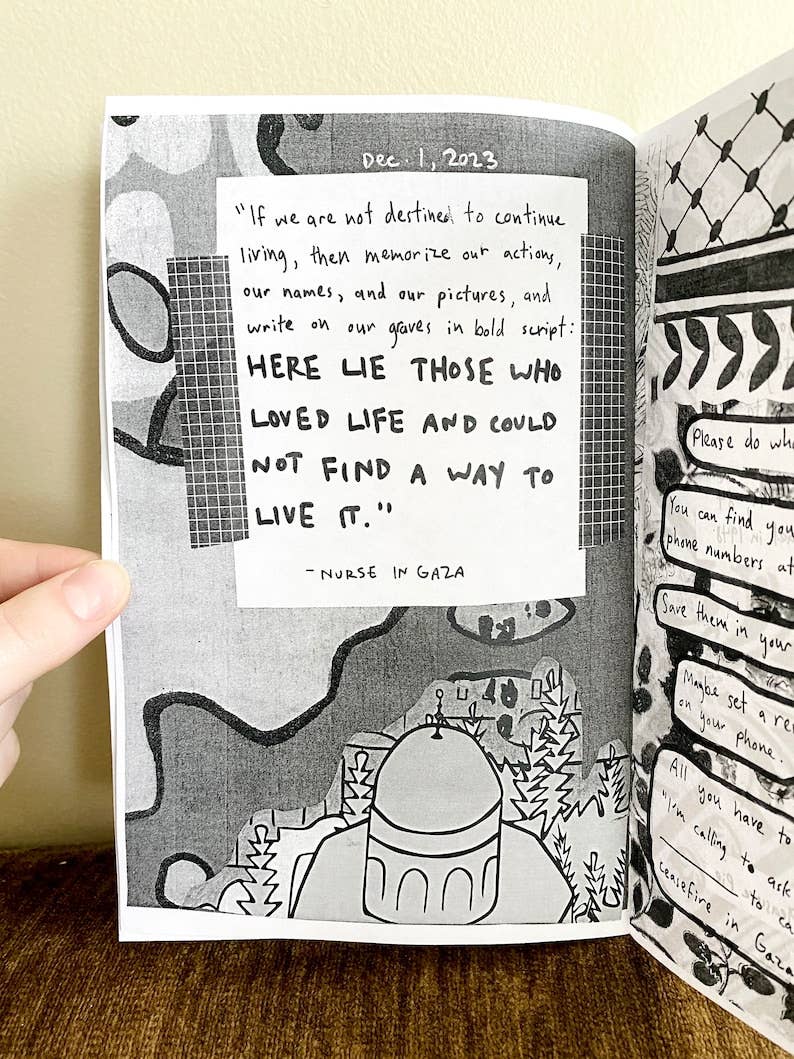 Dec. 1, 2023
"If we are not destined to continue
living, then memorize our actions,
our names, and our pictures, and
write on our graves in bold script:
HERE LIE THOSE WHO
LOVED LIFE AND COULD
NOT FIND A WAY TO
LIVE IT."
- NURSE IN GAZA
Please do
You can find
phone numbers
Save them in your
Maybe set a
on your phone.
All you have to
"I'm calling to ask
______ to
ceasefire in Gaza